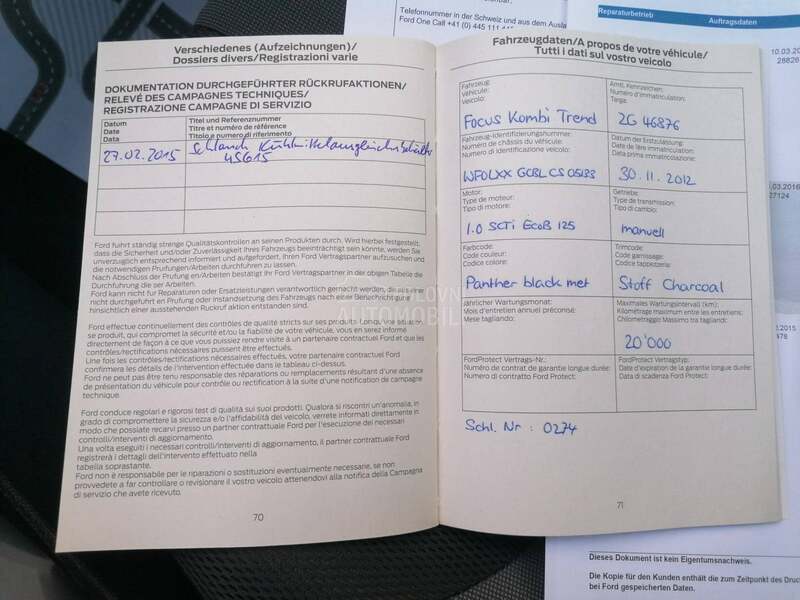 Telefonnummer in der Schweiz und aus dem
Ford One Call +41 (0) 445 111
Reparaturbetrieb
Auftragsdaten
10.03.20
28826
Verschiedenes (Aufzeichnungen)/
Dossiers divers/Registrazioni varie
DOKUMENTATION DURCHGEFÜHRTER RÜCKRUFAKTIONEN/
RELEVÉ DES CAMPAGNES TECHNIQUES/
REGISTRAZIONE CAMPAGNE DI SERVIZIO
Datum
Date
Data
Titel und Referenznummer
Titre et numéro de référence
Titolo e numero di riferimento
27.02.2015
Schlauch Kühlmittelausgleichsbehälter
45G15
Ford führt ständig strenge Qualitätskontrollen an seinen Produkten durch. Wird hierbei festgestellt,
dass die Sicherheit und/oder Zuverlässigkeit Ihres Fahrzeugs beeinträchtigt sein könnte, werden Sie
unverzüglich entsprechend informiert und aufgefordert, Ihren Ford Vertragspartner aufzusuchen und
die notwendigen Prüfungen/Arbeiten durchführen zu lassen.
Nach Abschluss der Prüfung en/Arbeiten bestätigt Ihr Ford Vertragspartner in der obigen Tabelle die
Durchführung die ser Arbeiten.
Ford kann nicht für Reparaturen oder Ersatzleistungen verantwortlich gemacht werden, die durch
nicht durchgeführt en Prüfung oder Instandsetzung des Fahrzeugs nach ein er Benachrichtigung
hinsichtlich einer ausstehenden Rückruf aktion entstanden sind.
Ford effectue continuellement des contrôles de qualité stricts sur ses produits. Lorsqu'une situation
se produit, qui compromet la sécurité et/ou la fiabilité de votre véhicule, vous en serez informé
directement de façon à ce que vous puissiez rendre visite à un partenaire contractuel Ford et que les
contrôles/rectifications nécessaires puissent être effectués.
Une fois les contrôles/rectifications nécessaires effectués, votre partenaire contractuel Ford
confirmera les détails de l'intervention effectuée dans le tableau ci-dessus.
Ford ne peut pas être tenu responsable des réparations ou remplacements résultant d'une absence
de présentation du véhicule pour contrôle ou rectification à la suite d'une notification de campagne
technique.
Ford conduce regolari e rigorosi test di qualità sui suoi prodotti. Qualora si riscontri un'anomalia, in
grado di compromettere la sicurezza e/o l'affidabilità del veicolo, verrete informati direttamente in
modo che possiate recarvi presso un partner contrattuale Ford per l'esecuzione dei necessari
controlli/interventi di aggiornamento.
Una volta eseguiti i necessari controlli/interventi di aggiornamento, il partner contrattuale Ford
registrerà i dettagli dell'intervento effettuato nella
tabella soprastante.
Ford non è responsabile per le riparazioni o sostituzioni eventualmente necessarie, se non
provvedete a far controllare o revisionare il vostro veicolo attenendovi alla notifica della Campagna
di servizio che avete ricevuto.
70
Fahrzeugdaten/A propos de votre véhicule/
Tutti i dati sul vostro veicolo
Fahrzeug:
Véhicule:
Veicolo:
Focus Kombi Trend
Amtl. Kennzeichen:
Numéro d'immatriculation:
Targa:
ZG 46876
Fahrzeug-Identifizierungsnummer:
Numéro de châssis du véhicule:
Numero di identificazione veicolo:
WF0LXX GCBL CS 05188
Datum der Erstzulassung:
Date de 1ère immatriculation:
Data prima immatricolazione:
30. 11. 2012
Motor:
Type de moteur:
Tipo di motore:
1.0 SCTi EcoB 125
Getriebe:
Type de transmission:
Tipo di cambio:
manuell
Farbcode:
Code couleur:
Codice colore:
Panther black met
Trimcode:
Code garnissage:
Codice tappezzeria:
Stoff Charcoal
Jährlicher Wartungsmonat:
Mois d'entretien annuel préconisé:
Mese tagliando:
Maximales Wartungsintervall (km):
Kilométrage maximum entre les entretiens:
Chilometraggio Massimo tra tagliandi:
20'000
FordProtect Vertrags-Nr.:
Numéro de contrat de garantie longue durée:
Numero di contratto Ford Protect:
FordProtect Vertragstyp:
Date d'expiration de la garantie longue durée:
Data di scadenza Ford Protect:
Schl. Nr : 0274
71
POLOVNI
AUTOMOBILI
.03.2016
27124
.2015
478
Dieses Dokument ist kein Eigentumsnachweis.
Die Kopie für den Kunden enthält die zum Zeitpunkt des
bei Ford gespeicherten Daten.